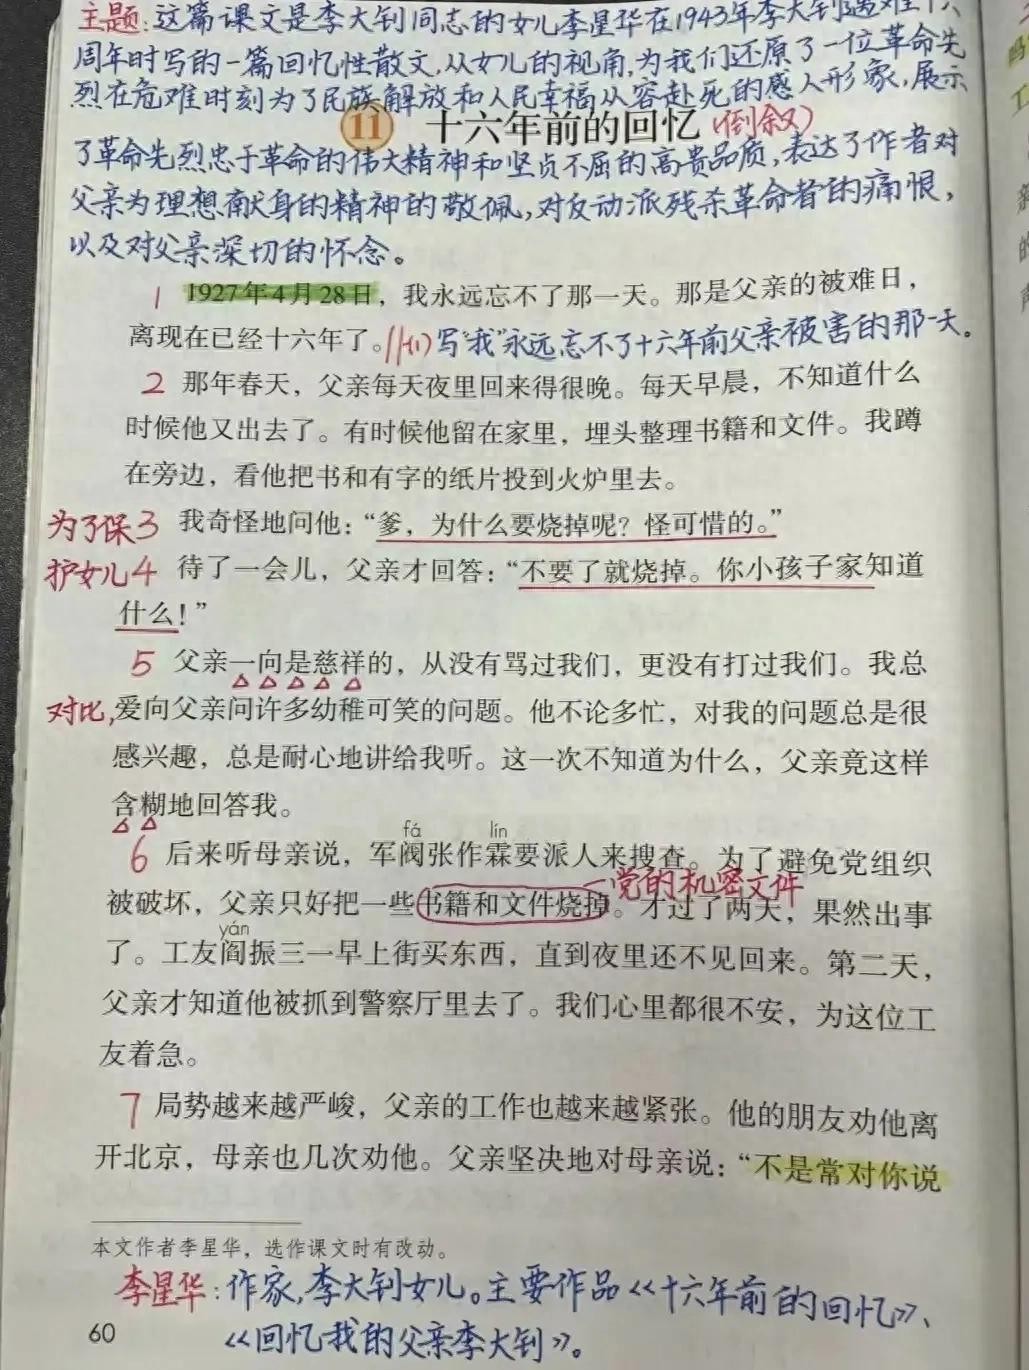 主题:这篇课文是李大钊同志的女儿李星华在1943年李大钊遇难十六
周年时写的一篇回忆性散文,从女儿的视角,为我们还原了一位革命先
烈在危难时刻为了民族解放和人民幸福从容赴死的感人形象,展示
11 十六年前的回忆(倒叙)
了革命先烈忠于革命的伟大精神和坚贞不屈的高贵品质,表达了作者对
父亲为理想献身的精神的敬佩,对反动派残杀革命者的痛恨,
以及对父亲深切的怀念。
1 1927年4月28日，我永远忘不了那一天。那是父亲的被难日，
离现在已经十六年了。//(1)写"我"永远忘不了十六年前父亲被害的那一天。
2 那年春天，父亲每天夜里回来得很晚。每天早晨，不知道什么
时候他又出去了。有时候他留在家里，埋头整理书籍和文件。我蹲
在旁边，看他把书和有字的纸片投到火炉里去。
为了保 3 我奇怪地问他：“爹，为什么要烧掉呢？怪可惜的。”
护女儿 4 待了一会儿，父亲才回答：“不要了就烧掉。你小孩子家知道
什么！”
5 父亲一向是慈祥的，从没有骂过我们，更没有打过我们。我总
对比, 爱向父亲问许多幼稚可笑的问题。他不论多忙，对我的问题总是很
感兴趣，总是耐心地讲给我听。这一次不知道为什么，父亲竟这样
含糊地回答我。
fá lín
6 后来听母亲说，军阀张作霖要派人来搜查。为了避免党组织
党的机密文件
被破坏，父亲只好把一些书籍和文件烧掉。才过了两天，果然出事
yán
了。工友阎振三一早上街买东西，直到夜里还不见回来。第二天，
父亲才知道他被抓到警察厅里去了。我们心里都很不安，为这位工
友着急。
7 局势越来越严峻，父亲的工作也越来越紧张。他的朋友劝他离
开北京，母亲也几次劝他。父亲坚决地对母亲说：“不是常对你说
本文作者李星华，选作课文时有改动。
李星华:作家,李大钊女儿。主要作品《十六年前的回忆》、
60 《回忆我的父亲李大钊》。